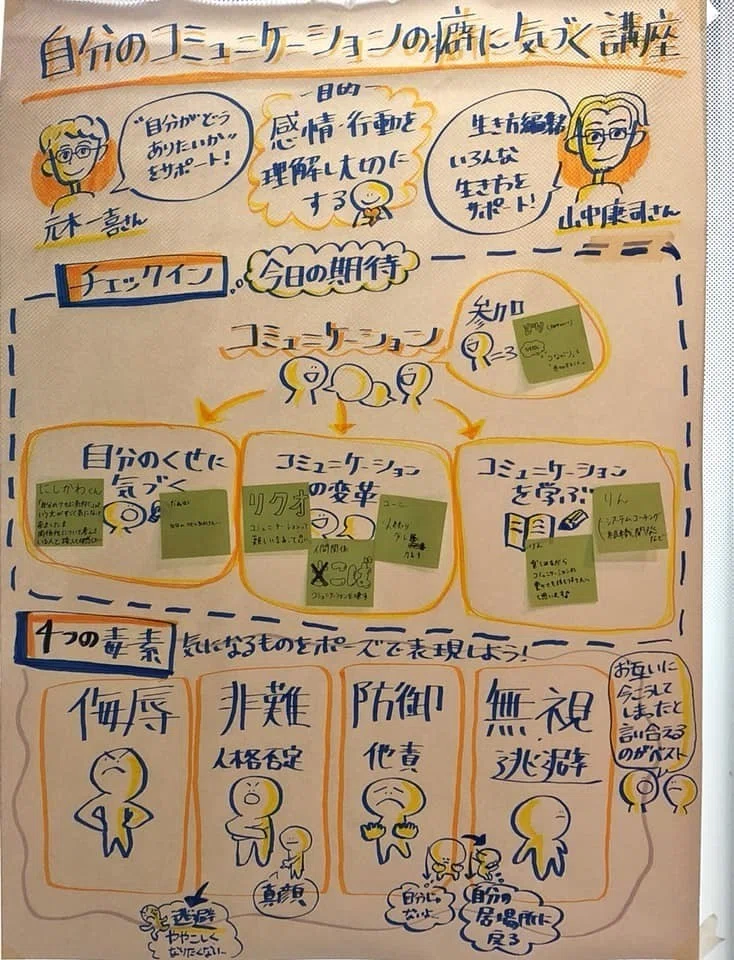 自分のコミュニケーションの癖に気づく講座
"自分がどう
ありたいか"
をサポート!
元木一喜さん
目的
感情・行動を
理解したものに
する
生き方編集
いろんな
生き方を
サポート!
山中康司さん
チェックイン
今日の期待
コミュニケーション
参加
自分のくせに
気づく
にしかわくん
コミュニケーション
の変革
リクオ
コミュニケーションって
人間関係
よこば
コミュニケーションを
コミュニケーション
を学ぶ
りん
システムコーチング
りん
楽しみながら
コミュニケーションの
4つの毒素
気になるものをポーズで表現しよう!
侮辱
非難
人格否定
真顔
防御
他責
無視
逃避
お互いに
今こうして
しまったと
言い合える
のがベスト
逃避
ややこしく
なりたくない…
自分じゃ
ないよ…
自分の
居場所に
戻る